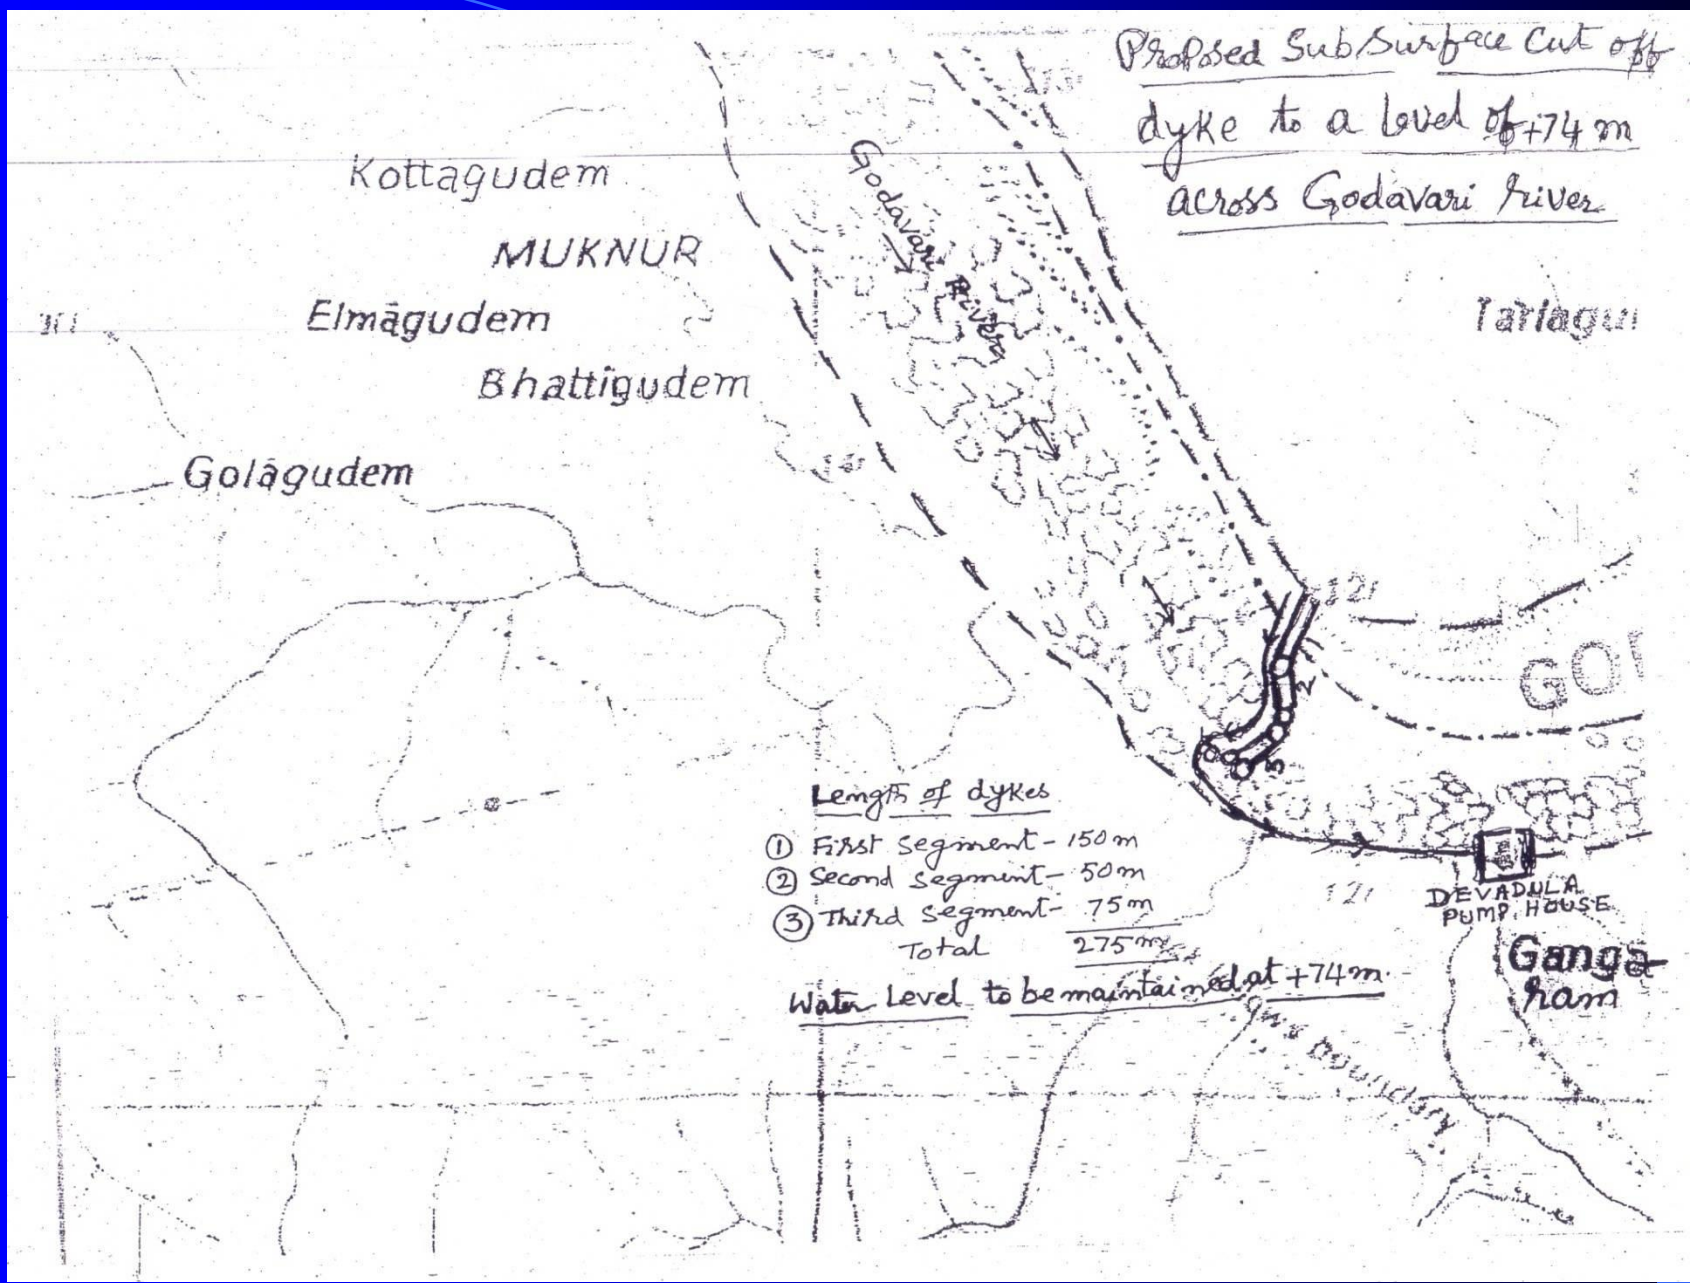 Proposed Sub Surface Cut off
dyke to a level of +74 m
across Godavari river
Kottagudem
MUKNUR
Elmāgudem
Bhattigudem
Golāgudem
Godāvari River
121
GO
2
3
Length of dykes
① First segment - 150 m
② Second segment - 50 m
③ Third segment - 75 m
Total 275 m
Water Level to be maintained at +74 m.
121
DEVADULA
PUMP HOUSE
Ganga-
ram
boundary